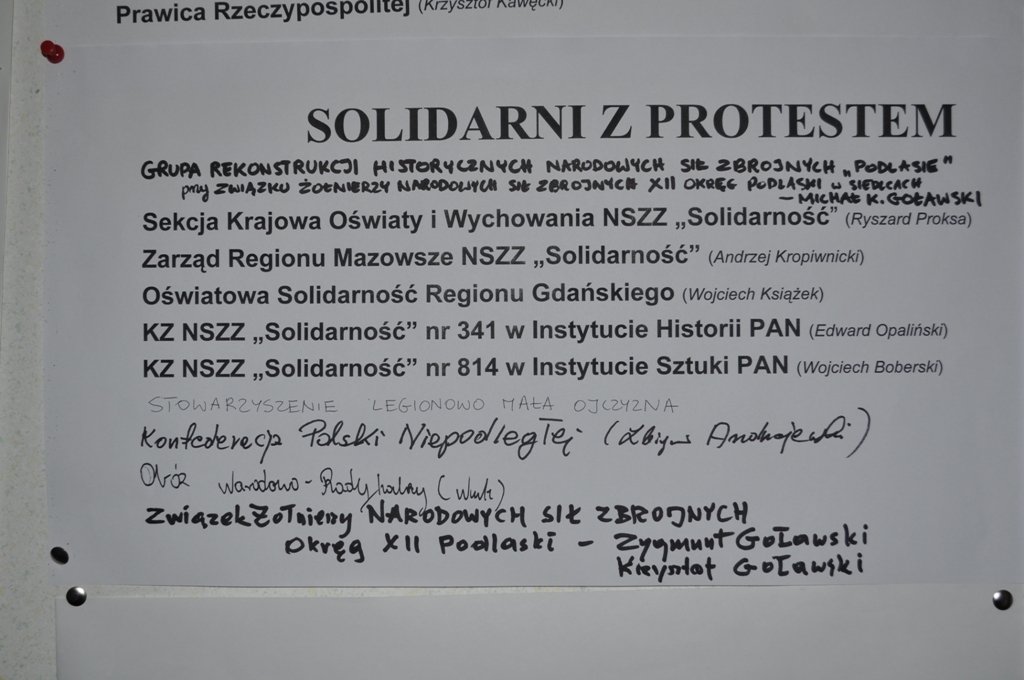 Prawica Rzeczypospolitej (Krzysztof Kawęcki)
SOLIDARNI Z PROTESTEM
GRUPA REKONSTRUKCJI HISTORYCZNYCH NARODOWYCH SIŁ ZBROJNYCH „PODLASIE"
przy ZWIĄZKU ŻOŁNIERZY NARODOWYCH SIŁ ZBROJNYCH XII OKRĘG PODLASKI w SIEDLCACH
– MICHAŁ K. GOŁAWSKI
Sekcja Krajowa Oświaty i Wychowania NSZZ „Solidarność" (Ryszard Proksa)
Zarząd Regionu Mazowsze NSZZ „Solidarność" (Andrzej Kropiwnicki)
Oświatowa Solidarność Regionu Gdańskiego (Wojciech Książek)
KZ NSZZ „Solidarność" nr 341 w Instytucie Historii PAN (Edward Opaliński)
KZ NSZZ „Solidarność" nr 814 w Instytucie Sztuki PAN (Wojciech Boberski)
STOWARZYSZENIE LEGIONOWO MAŁA OJCZYZNA
Konfederacja Polski Niepodległej (
Obóz Narodowo-Radykalny (
Związek Żołnierzy NARODOWYCH SIŁ ZBROJNYCH
Okręg XII Podlaski – Zygmunt Goławski
Krzysztof Goławski